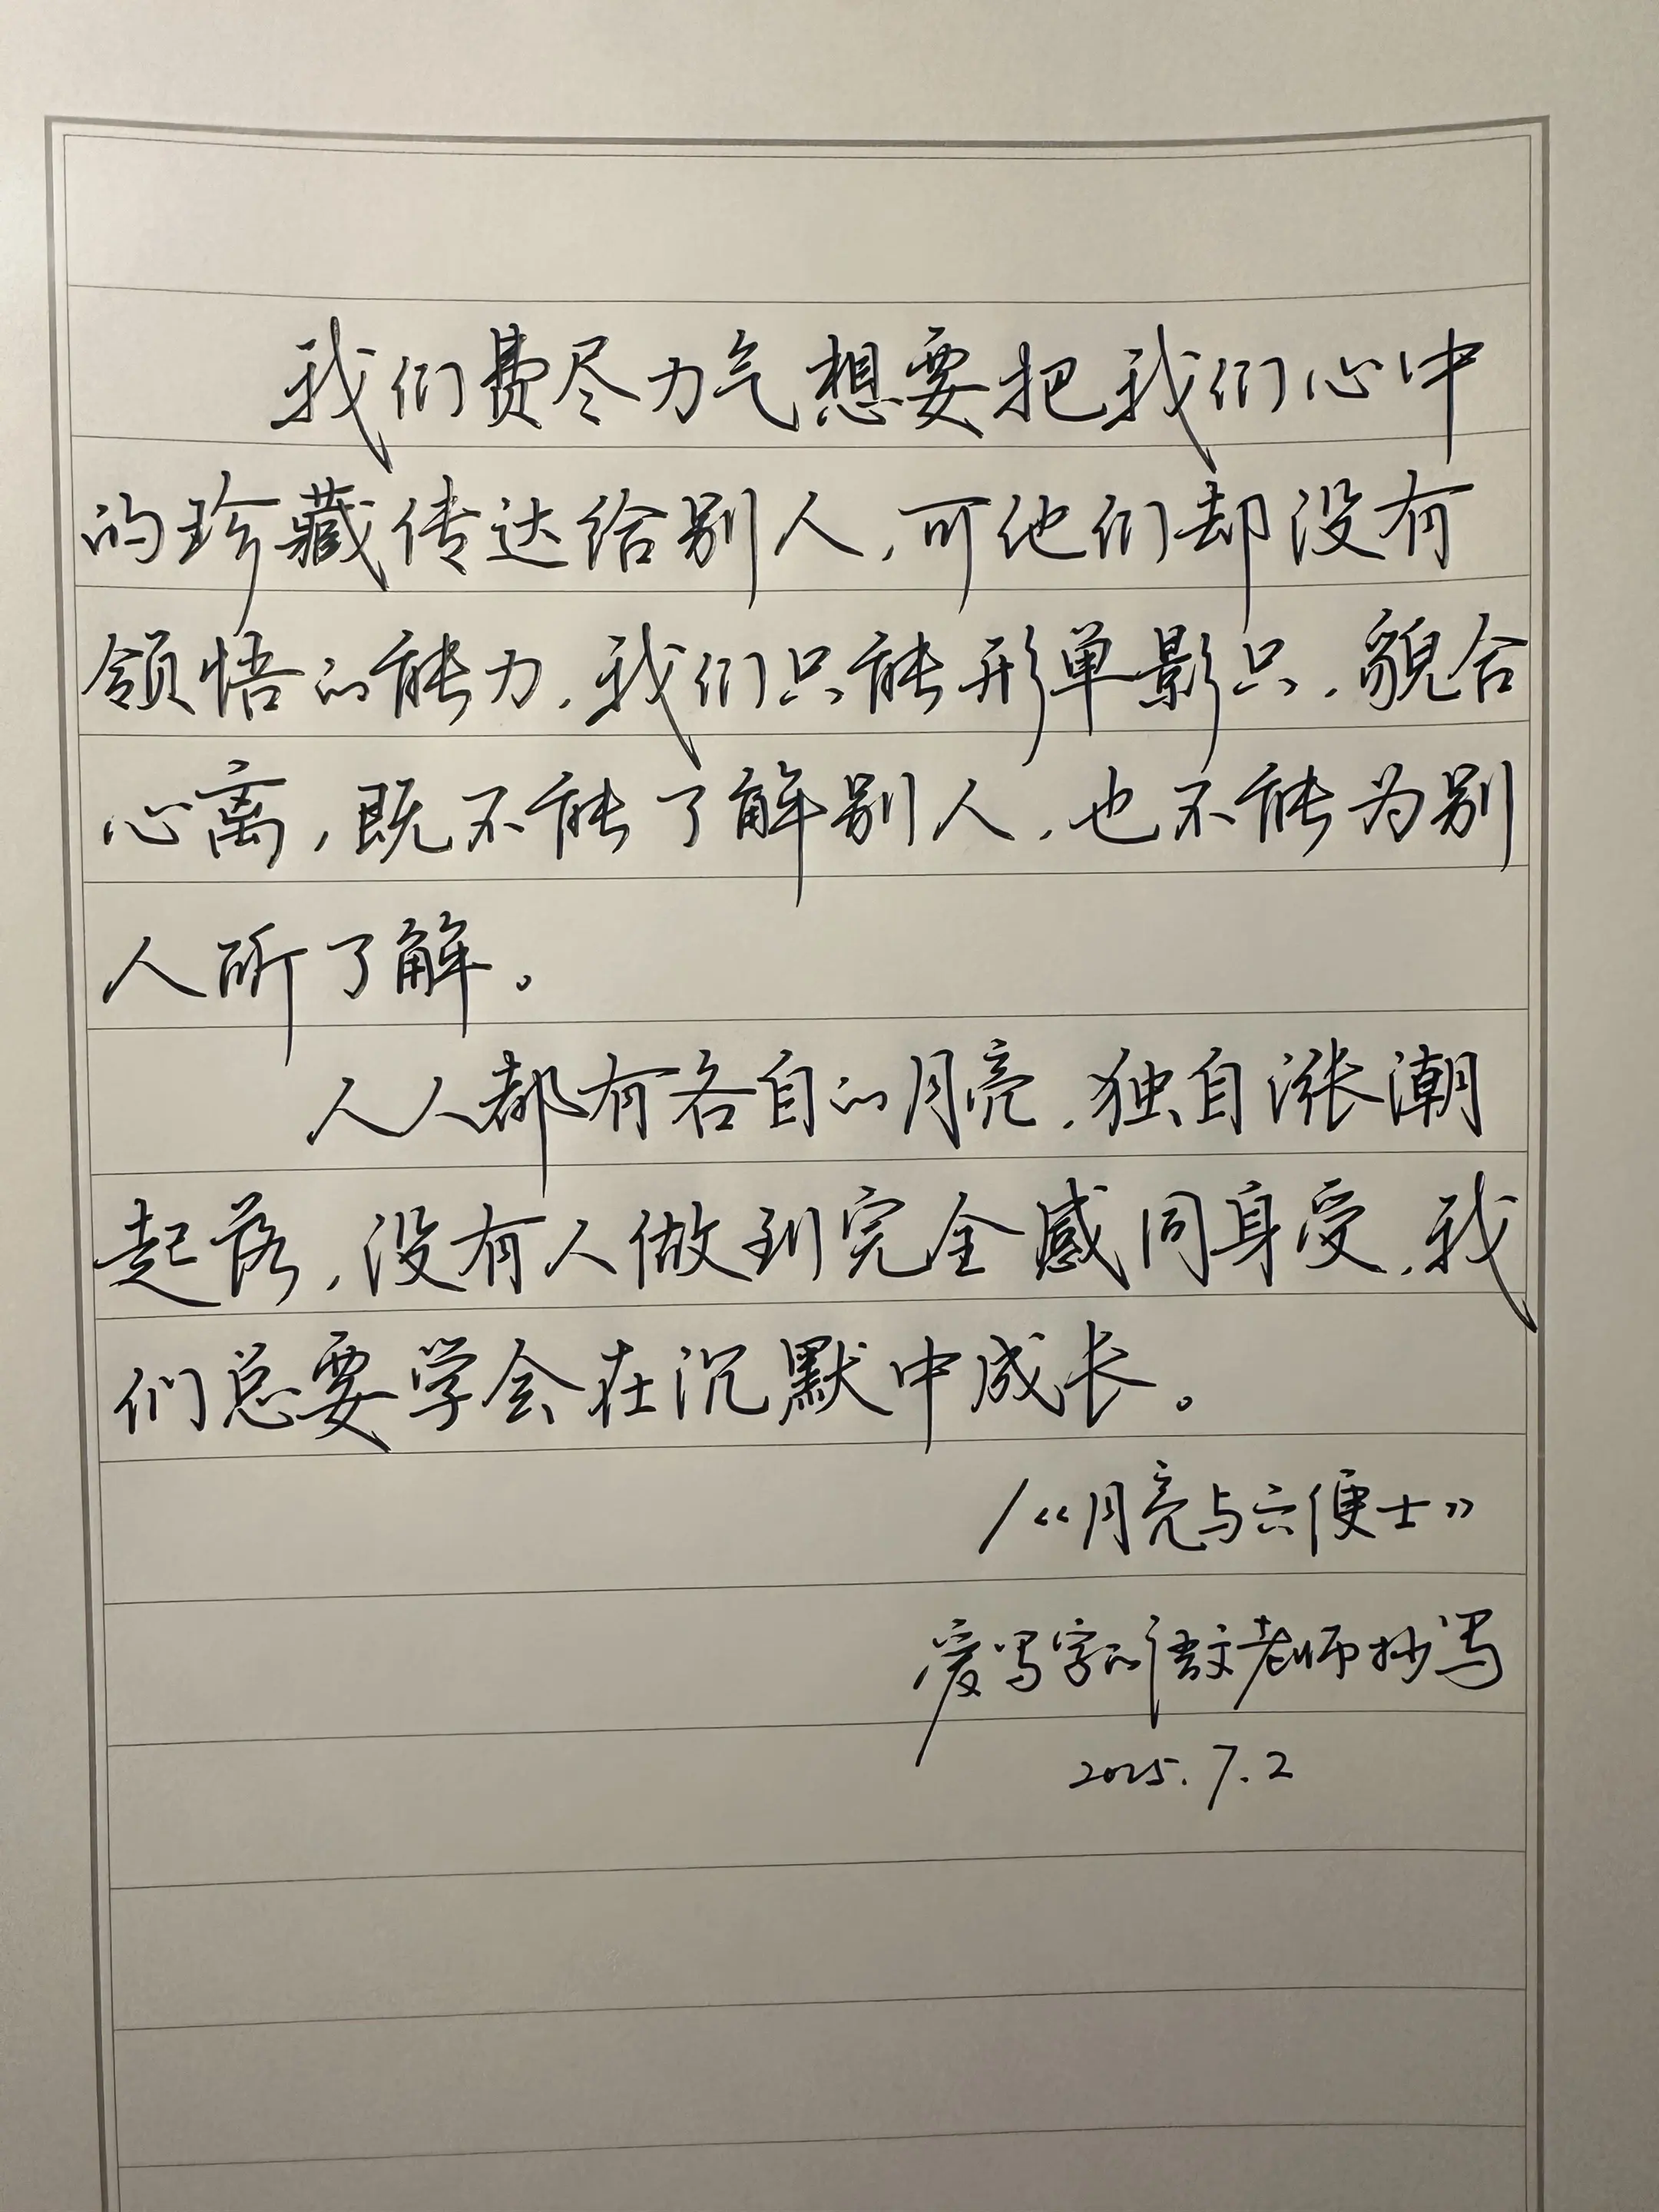 我们费尽力气想要把我们心中
的珍藏传达给别人,可他们却没有
领悟的能力,我们只能形单影只,貌合
心离,既不能了解别人,也不能为别
人所了解。
人人都有各自的月亮,独自涨潮
起落,没有人做到完全感同身受,我
们总要学会在沉默中成长。
/《月亮与六便士》
爱写字的语文老师抄写
2025.7.2